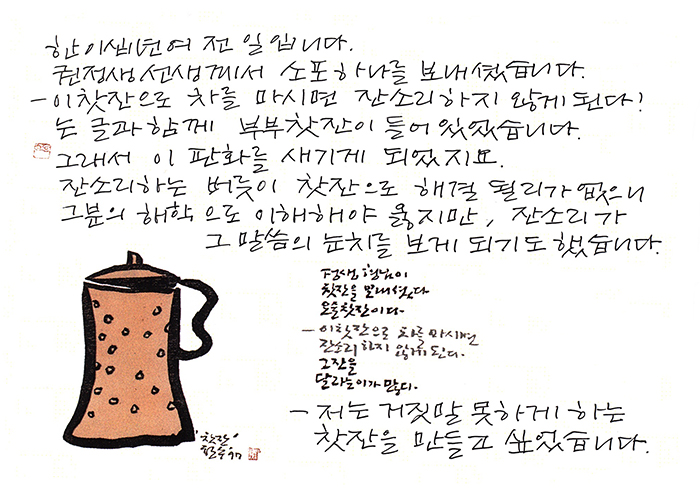 한 이십년여 전 일입니다.
권정생선생께서 소포하나를 보내셨습니다.
- 이찻잔으로 차를 마시면 잔소리하지 않게 된다!
는 글과 함께 부부찻잔이 들어 있었습니다.
그래서 이 판화를 새기게 되었지요.
잔소리하는 버릇이 찻잔으로 해결 될리가 없으니
그분의 해학으로 이해해야 옳지만, 잔소리가
그 말씀의 눈치를 보게 되기도 했습니다.
정생 형님이
찻잔을 보내셨다
오줌찻잔이다-
- 이찻잔으로 차를 마시면
잔소리 하지 않게 된다.
그잔을
달라는이가 많다.
- 저는 거짓말 못하게 하는
찻잔을 만들고 싶었습니다.
'찻잔'